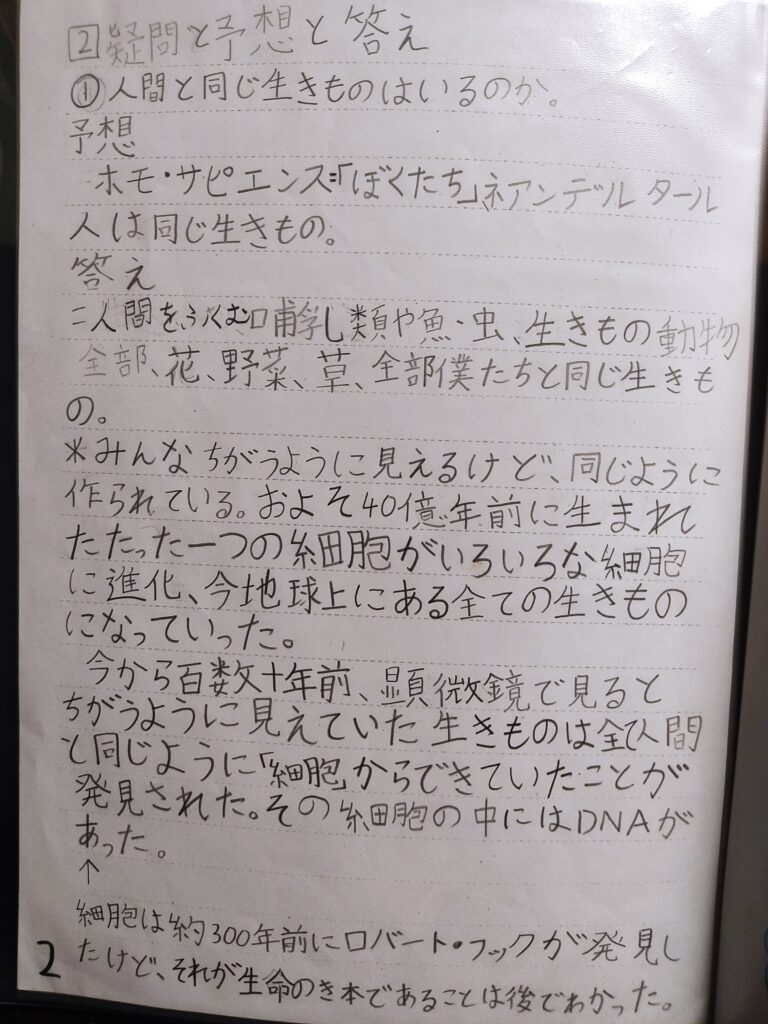 2 疑問と予想と答え
① 人間と同じ生きものはいるのか。
予想
ホモ・サピエンス=「ぼくたち」、ネアンデルタール
人は同じ生きもの。
答え
=人間をふくむ哺乳類や魚・虫、生きもの動物
全部、花、野菜、草、全部僕たちと同じ生きも
の。
*みんなちがうように見えるけど、同じように
作られている。およそ40億年前に生まれ
たたった一つの細胞がいろいろな細胞
に進化、今地球上にある全ての生きもの
になっていった。
今から百数十年前、顕微鏡で見ると
ちがうように見えていた生きものは全て人間
と同じように「細胞」からできていたことが
発見された。その細胞の中にはDNAが
あった。
↑
細胞は約300年前にロバート・フックが発見し
たけど、それが生命のき本であることは後でわかった。
2